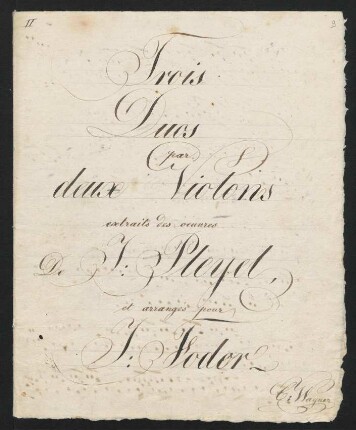 II
Trois
Duos
par
deux Violons
extraits des oeuvres
De J: Pleyel,
et arrangés pour
J. Fodor
Wagner